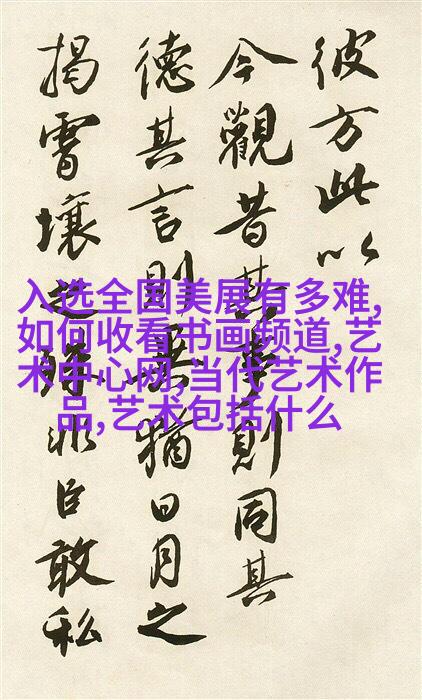 彼方此以
今觀昔其事則同其
德其言則異猶日月之
揭霄壤之殊非臣敢私
入选全国美展有多难,
如何收看书画频道,艺
术中心网,当代艺术作
品,艺术包括什么